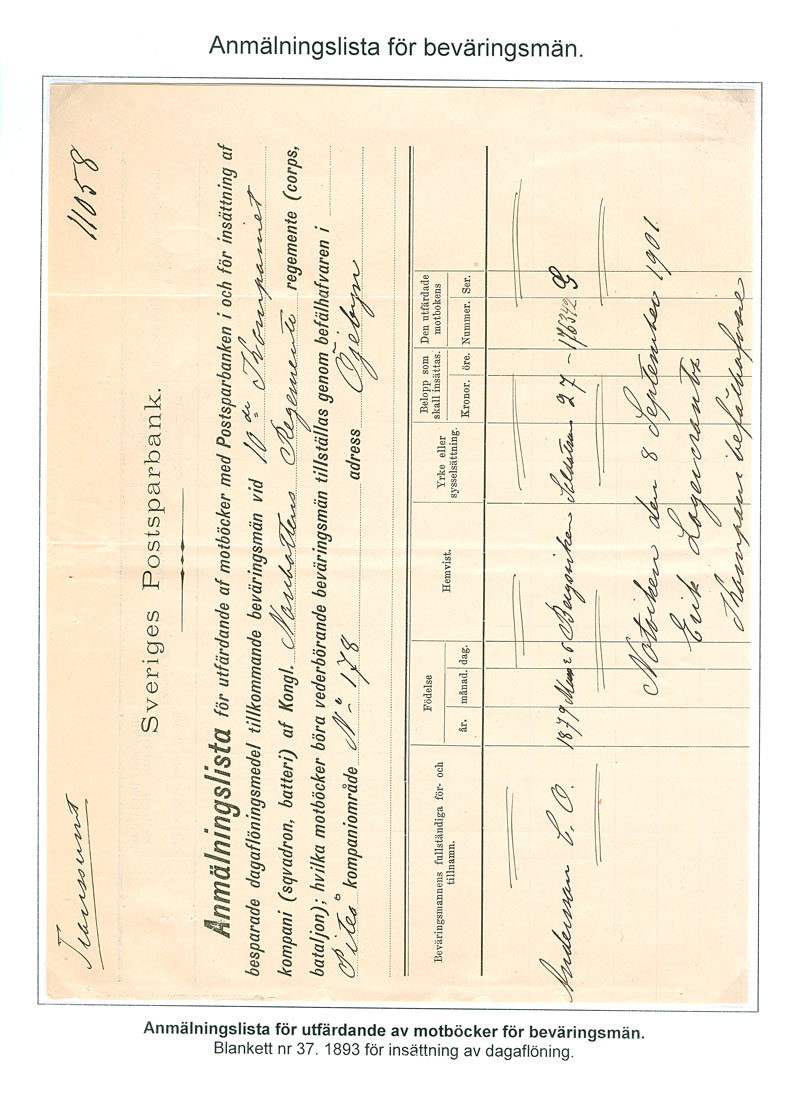 Anmälningslista för beväringsmän.
Transsumt
11058
Sveriges Postsparbank.
Anmälningslista för utfärdande af motböcker med Postsparbanken i och för insättning af
besparade dagaflöningsmedel tillkommande beväringsmän vid 10de Kompaniet
kompani (sqvadron, batteri) af Kongl. Norrbottens Regemente regemente (corps,
bataljon); hvilka motböcker böra vederbörande beväringsmän tillställas genom befälhafvaren i
Piteå kompaniområde No 178 adress Öjebyn
Beväringsmannens fullständiga för- och tillnamn. Födelse år. månad. dag. Hemvist. Yrke eller sysselsättning. Belopp som skall insättas. Kronor. öre. Den utfärdade motbokens Nummer. Ser.
Andersson C. O. 1879 Mars 26 Bergsviken 27 – 176342 G
Notviken den 8 September 1901.
Erik Lagercrantz
Kompanibefälhafvare
Anmälningslista för utfärdande av motböcker för beväringsmän.
Blankett nr 37. 1893 för insättning av dagaflöning.